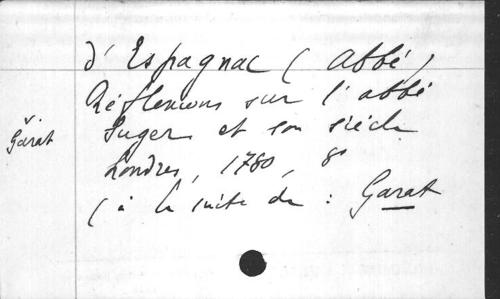 d'Espagnac (abbé)
Réflexions sur l'abbé
Suger et son siècle
Londres, 1780, 8°
(à la suite de : Garat
v. Garat